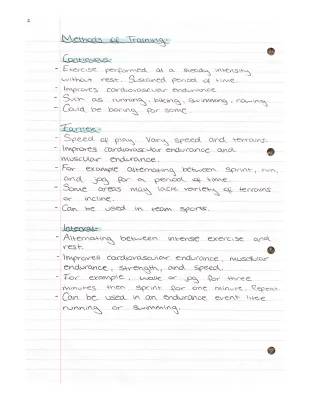 Methods of Training:
Continuous:
- Exercise performed at a steady intensity
without rest. Sustained period of time.
- Improves cardiovascular endurance
- Such as running, biking, swimming, rowing
- Could be boring for some.
Fartlek:
- Speed of play. Vary speed and terrains.
- Improves cardiovascular endurance and
muscular endurance.
- For example alternating between sprint, run,
and jog for a period of time.
- Some areas may lack variety of terrains
or incline.
- Can be used in team sports.
Interval:
- Alternating between intense exercise and
rest.
- Improves cardiovascular endurance, muscular
endurance, strength, and speed.
- For example, walk or jog for three
minutes then sprint for one minute. Repeat.
- Can be used in an endurance event like
running or swimming.